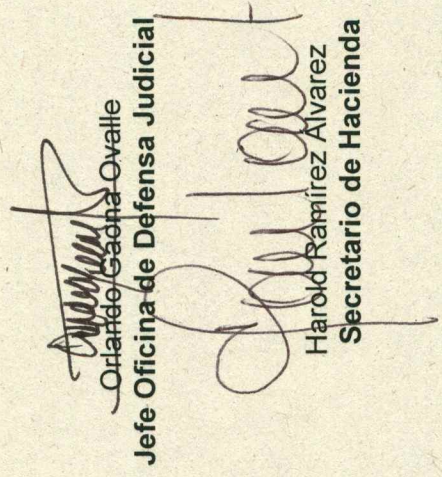 Orlando Gaona Ovalle
Jefe Oficina de Defensa Judicial
Harold Ramírez Álvarez
Secretario de Hacienda